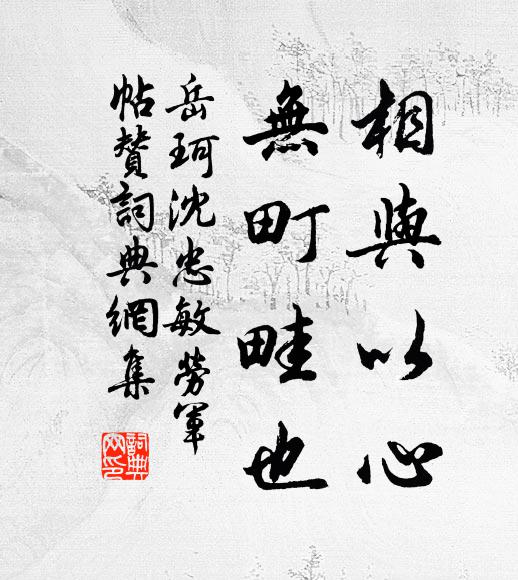 相與以心
無町畦也
岳珂沈忠敏勞軍
帖贊詞典網集
詞典網印